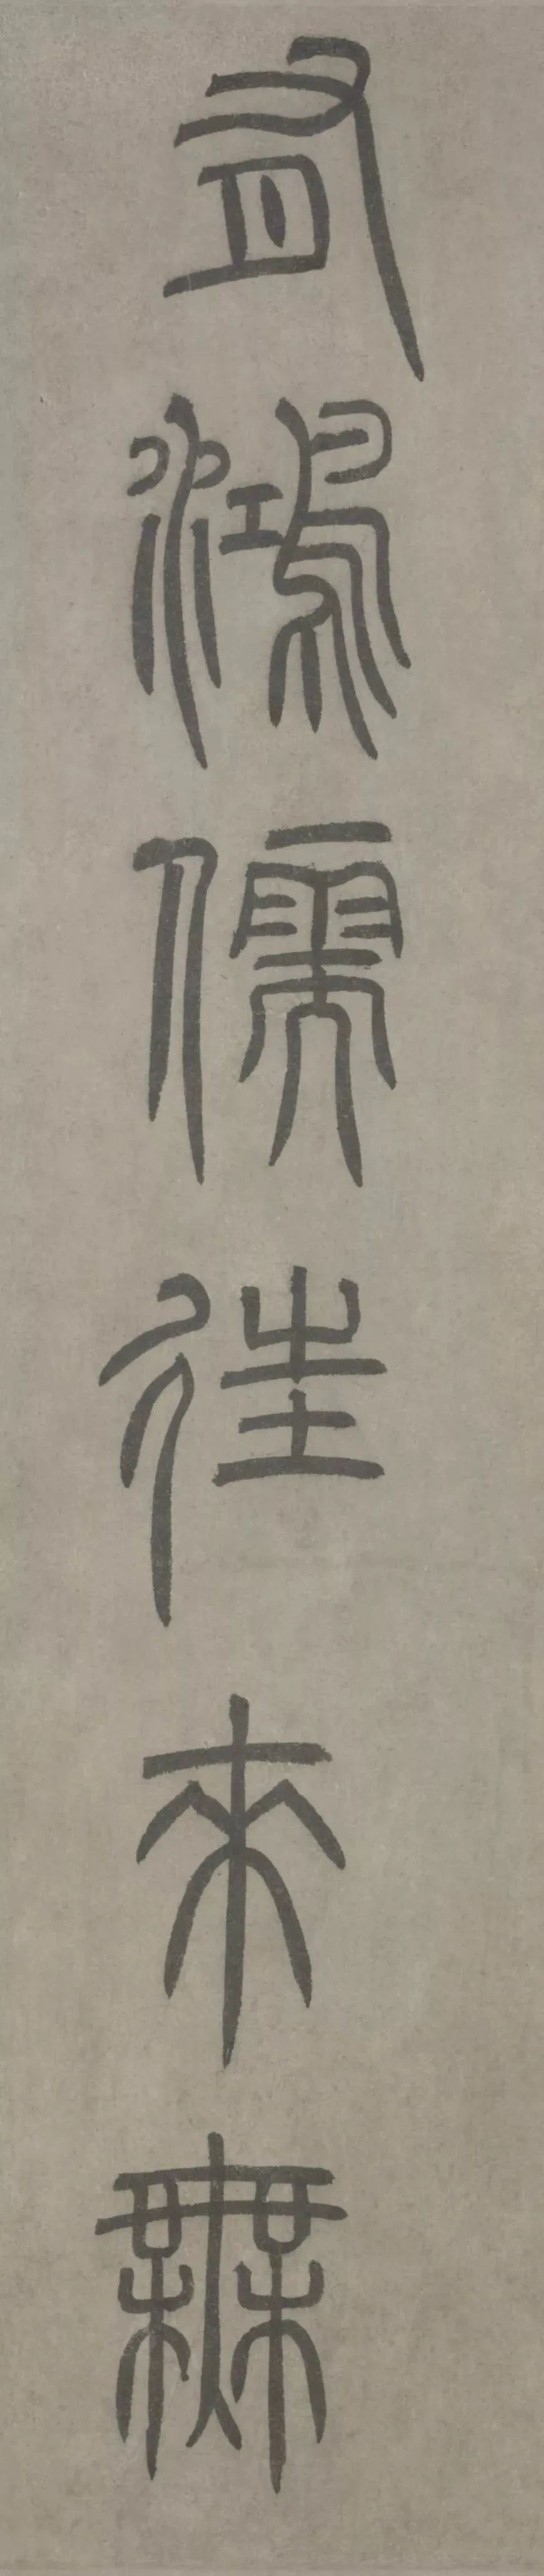 有鴻儒往來無